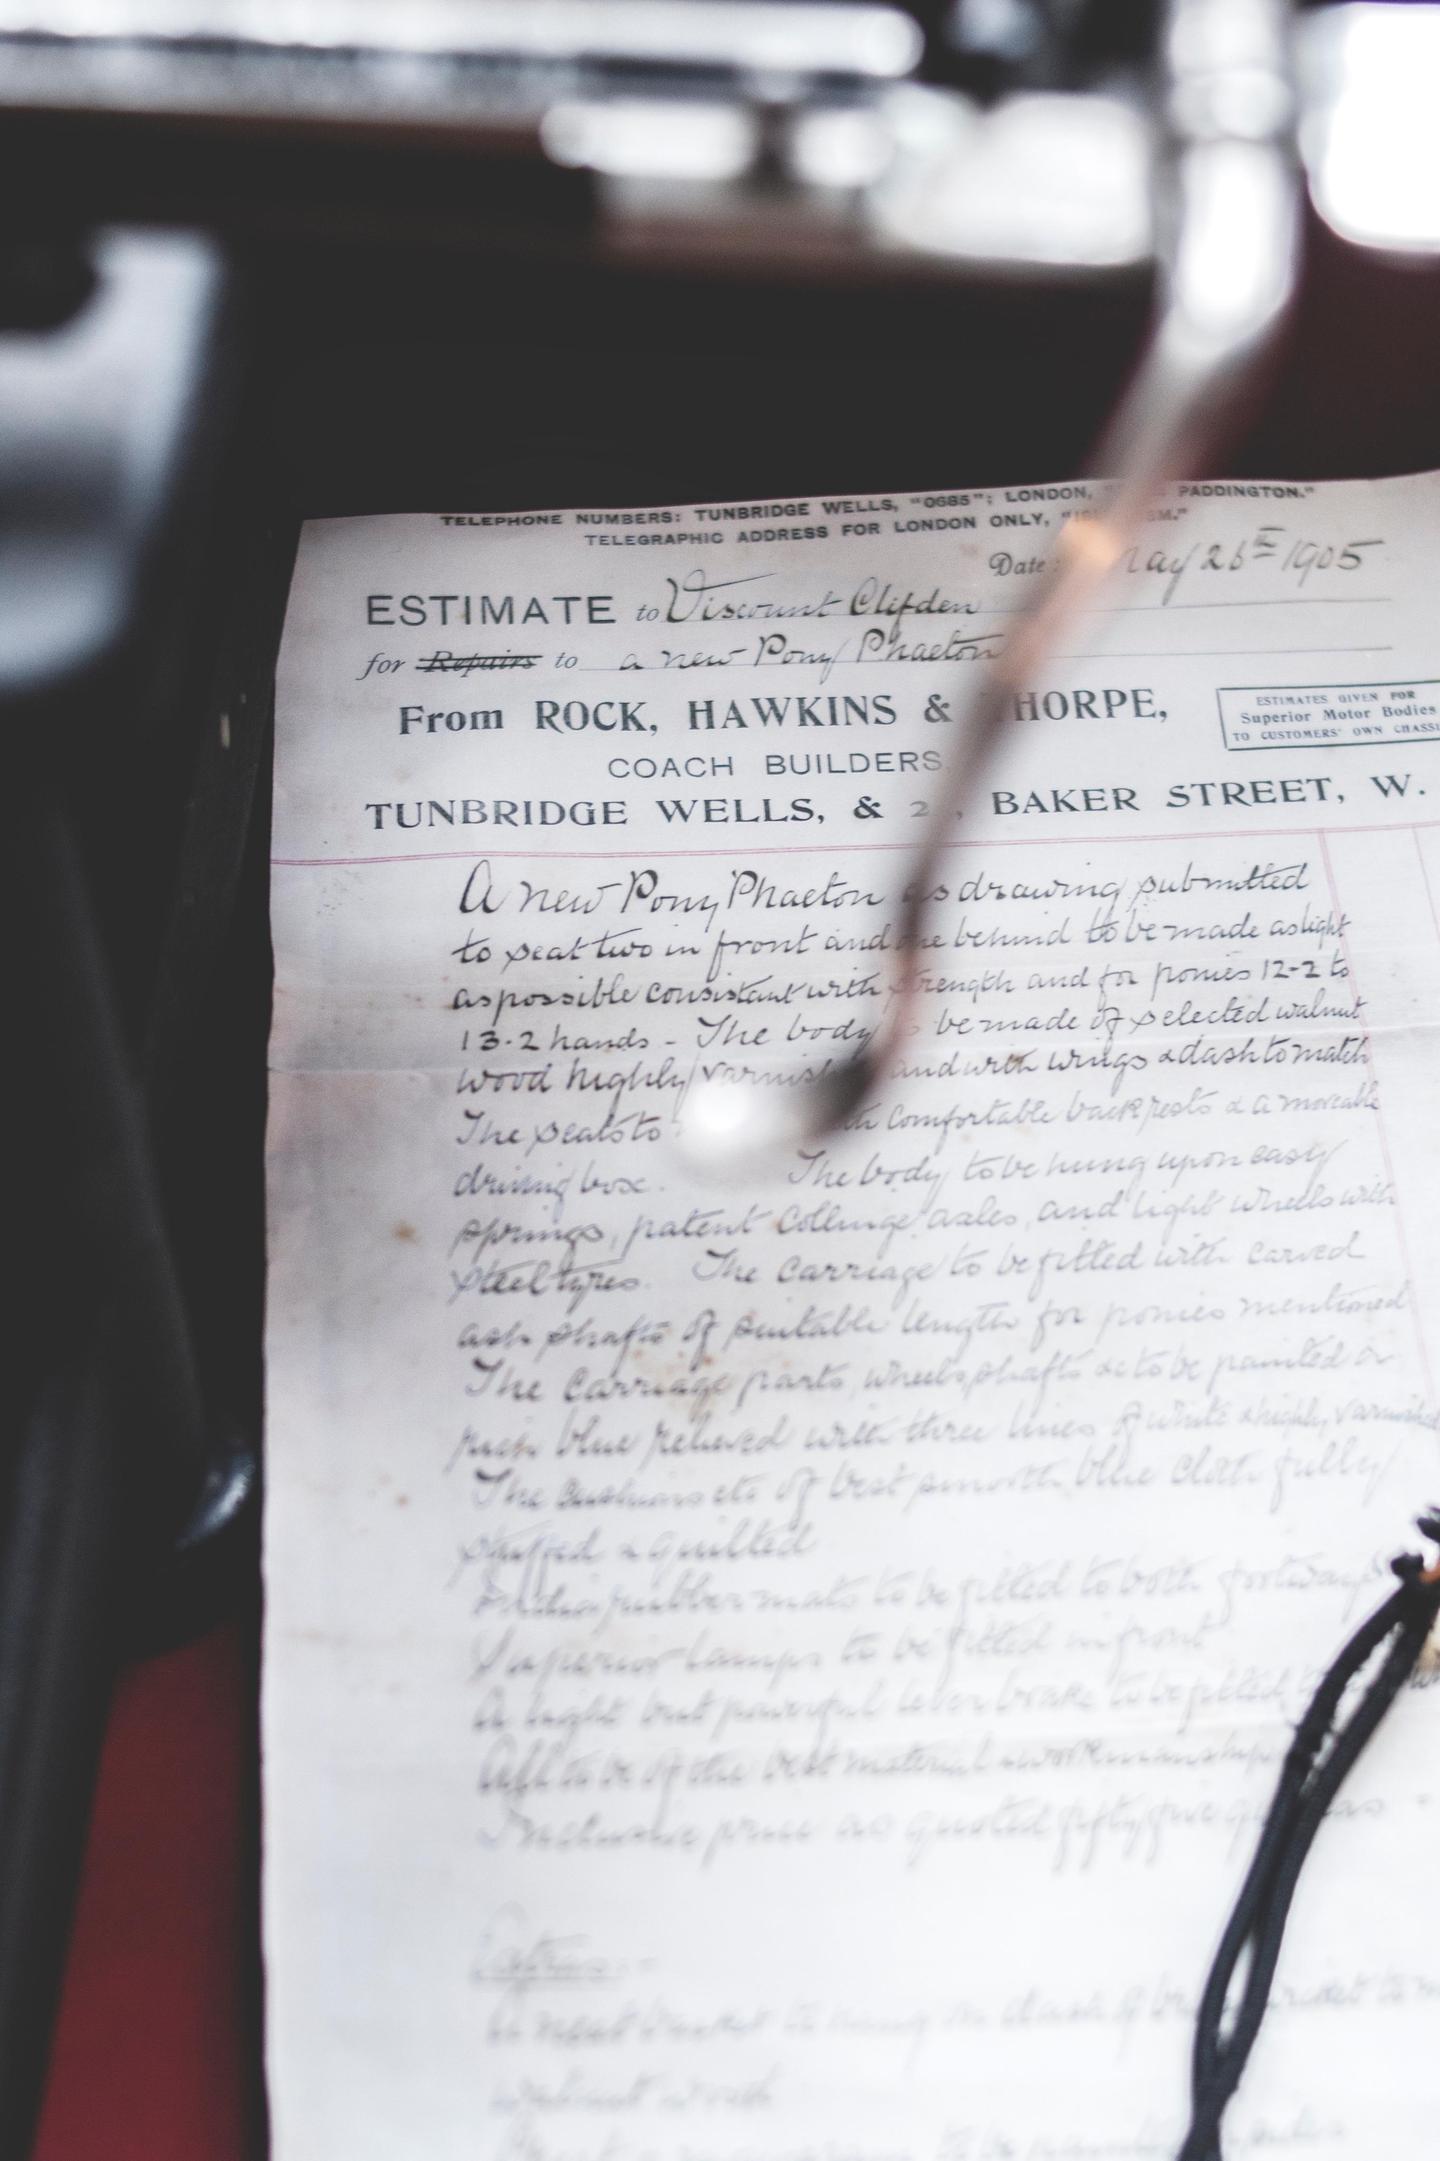 TELEPHONE NUMBERS: TUNBRIDGE WELLS, "0685"; LONDON, PADDINGTON."
TELEGRAPHIC ADDRESS FOR LONDON ONLY,
Date: May 26th 1905
ESTIMATE to Viscount Clifden
for Repairs to a new Pony Phaeton
From ROCK, HAWKINS & THORPE,
ESTIMATES GIVEN FOR
Superior Motor Bodies
TO CUSTOMERS' OWN CHASSI
COACH BUILDERS
TUNBRIDGE WELLS, & 2 , BAKER STREET, W.
A new Pony Phaeton as drawing submitted
to seat two in front and one behind to be made as light
as possible consistant with strength and for ponies 12-2 to
13-2 hands - The body to be made of selected walnut
wood highly varnished and with wings & dash to match
The seats to with comfortable back rests & a moveable
driving box. The body to be hung upon easy
springs, patent Collinge axles, and light wheels with
steel tyres. The carriage to be fitted with carved
ash shafts of suitable length for ponies mentioned
The carriage parts, wheels, shafts &c to be painted a
rich blue relieved with three lines of white & highly varnished
The cushions etc of best smooth blue cloth fully
stuffed & quilted
India rubber mats to be fitted to both footways
Superior lamps to be fitted in front
A light but powerful lever brake to be fitted
All to be of the best material & workmanship
Inclusive price as quoted fifty five guineas -
Extras:-
A neat basket to hang on dash of
walnut wood